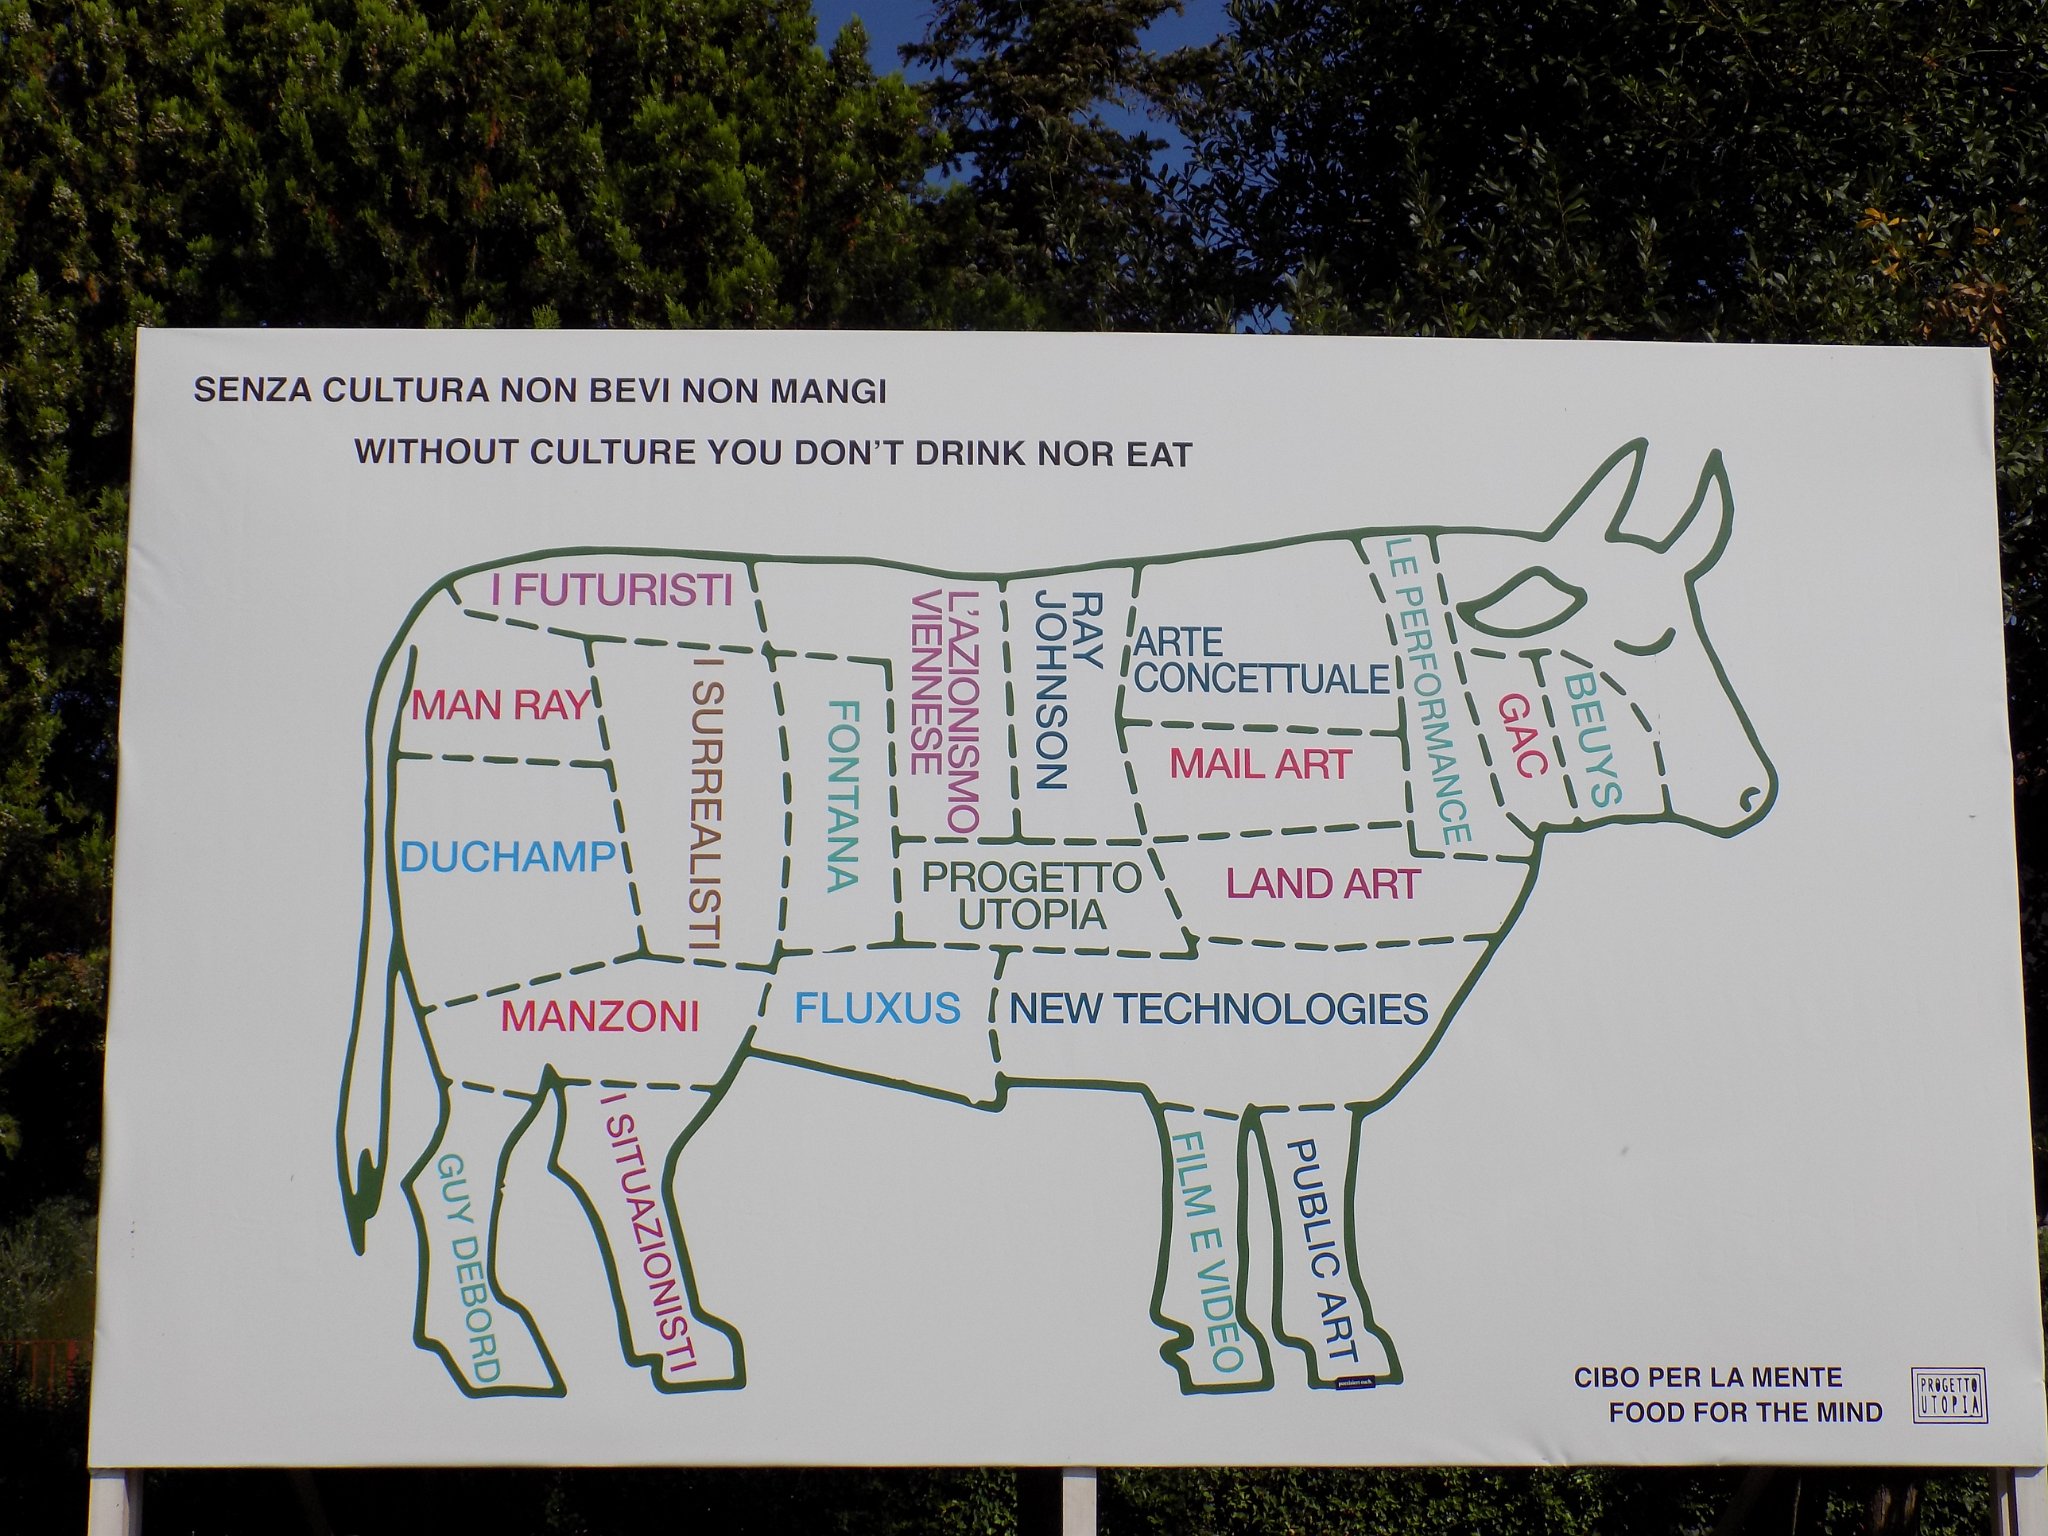 SENZA CULTURA NON BEVI NON MANGI
WITHOUT CULTURE YOU DON'T DRINK NOR EAT
I FUTURISTI
MAN RAY
DUCHAMP
I SURREALISTI
FONTANA
L'AZIONISMO
VIENNESE
RAY
JOHNSON
ARTE
CONCETTUALE
LE PERFORMANCE
GAC
BEUYS
MAIL ART
PROGETTO
UTOPIA
LAND ART
MANZONI
FLUXUS
NEW TECHNOLOGIES
GUY DEBORD
I SITUAZIONISTI
FILM E VIDEO
PUBLIC ART
CIBO PER LA MENTE
FOOD FOR THE MIND
PROGETTO
UTOPIA